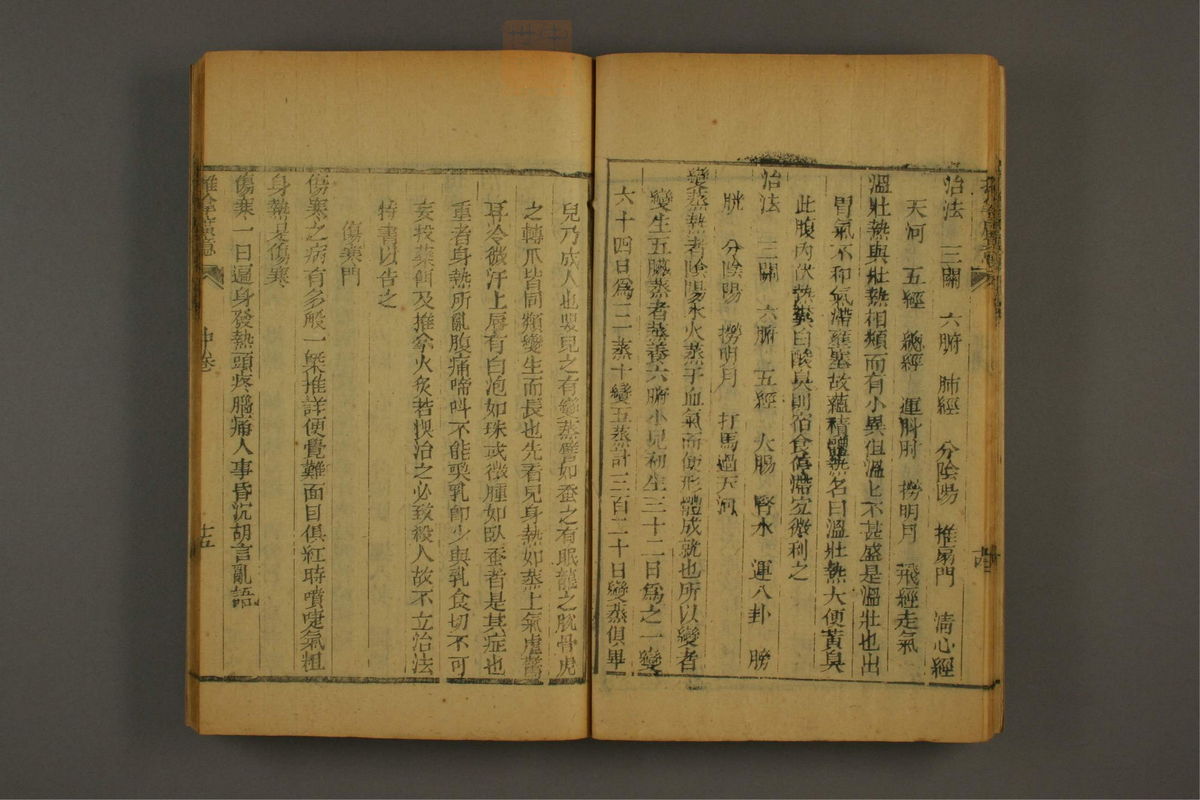 治法 三關 六腑 肺經 分陰陽 推扇門 淸心經
天河 五經 總經 運肘肘 撈明月 飛經走氣
溫壯熱與壯熱相類而有小異但溫上不甚盛是溫壯也出
胃氣不和氣滯壅塞故蘊積體熱名曰溫壯熱大便黃臭
此腹內伏熱糞白酸臭則宿食停滯宜微利之
治法 三關 六腑 五經 大腸 腎水 運八卦 膀
胱 分陰陽 撈明月 打馬過天河
變蒸熱者陰陽水火蒸于血氣而使形體成就也所以變者
變生五臟蒸者蒸養六腑小兒初生三十二日爲之一變
六十四日爲二蒸十變五蒸計三百二十日變蒸俱畢
兒乃成人也嬰兒之有變蒸譬如蚕之有眠龍之脫骨虎
之轉爪皆同類變生而長也先看兒身熱如蒸上氣虛驚
耳冷微汗上唇有白泡如珠或微腫如臥蚕者是其症也
重者身熱所亂腹痛啼叫不能哭乳卽少與乳食切不可
妄投藥餌及推拿火炙若悞治之必致殺人故不立治法
特書以告之
傷寒門
傷寒之病有多般一槩推詳便覺難面目俱紅時噴嚏氣粗
身熱是傷寒
傷寒一日遍身發熱頭疼腦痛人事昏沉胡言亂語
中卷
十五